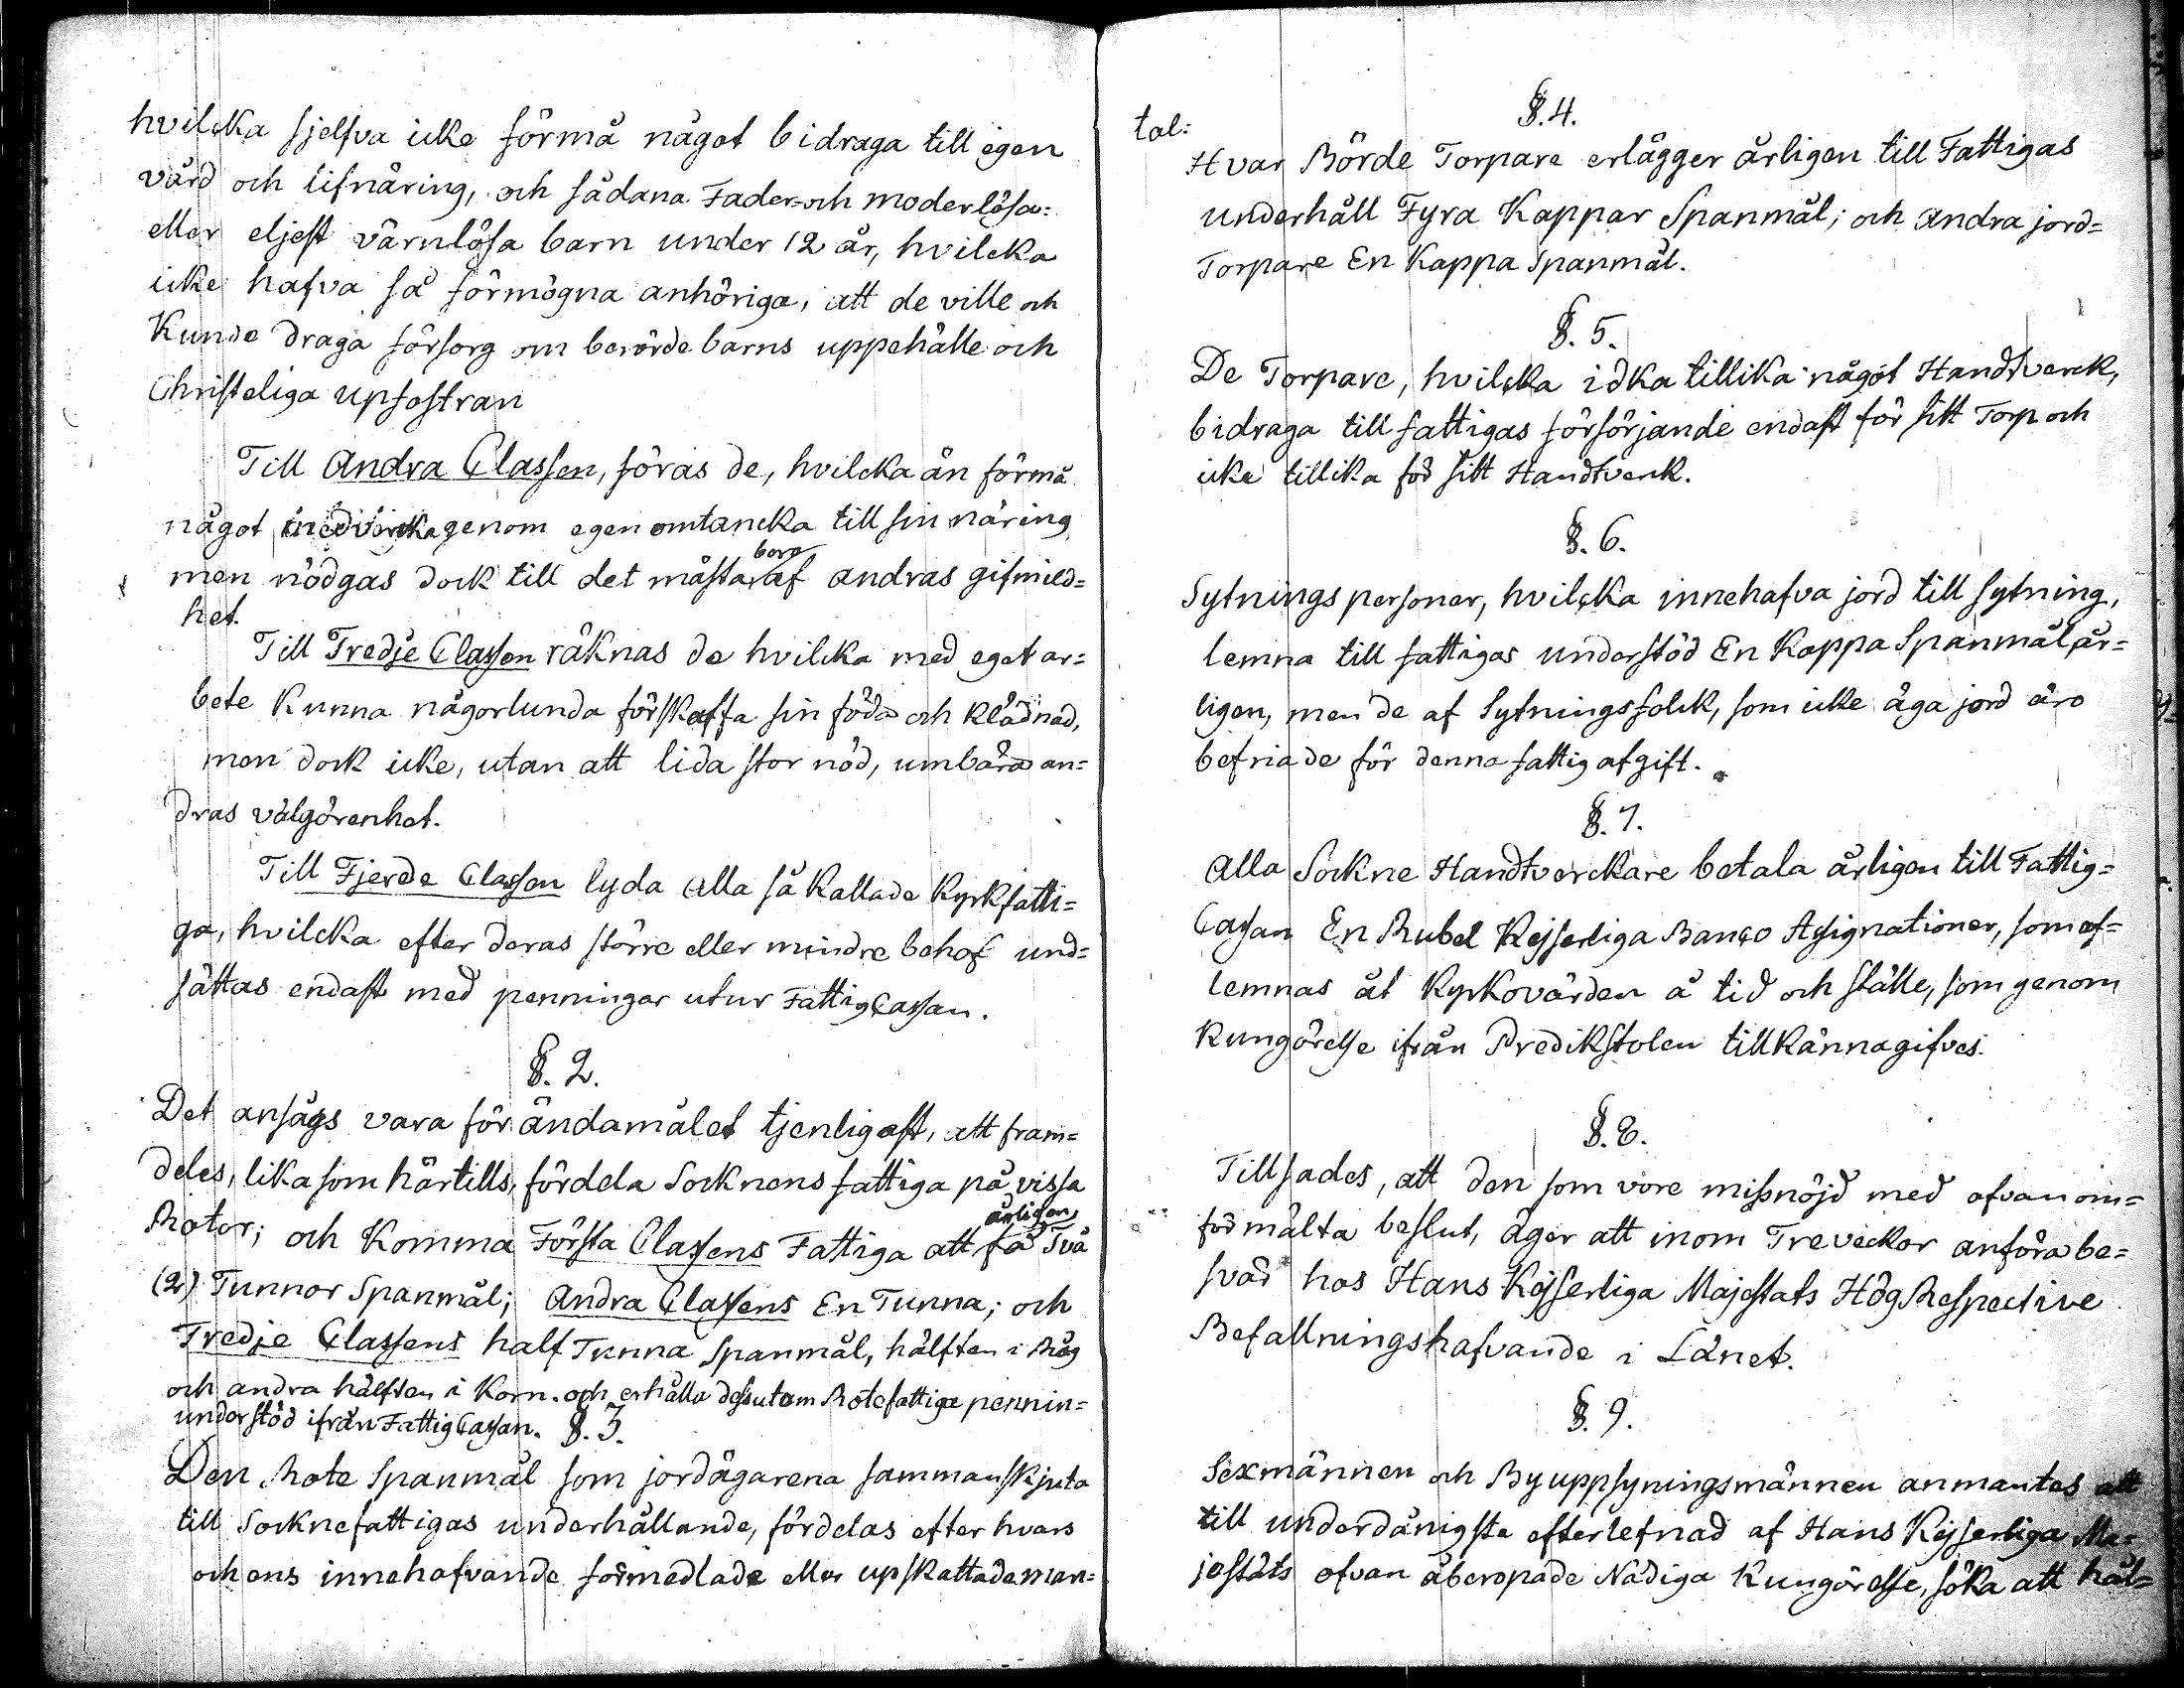 hvilcka sjelfva icke förmå något bidraga till egen
vård och lifnäring, och sådana Fader- och moderlösa:
eller eljest värnlösa barn under 12 år, hvilcka
icke hafva så förmögna anhöriga, att de ville och
Kunde draga försorg om berörde barns uppehälle och
Christeliga upfostran
Till Andra Classen, föras de, hvilcka än förmå
något medvircka genom egen omtancka till sin näring
men nödgas dock till det mästa bero af andras gifmild=
het.
Till Tredje Classen räknas de hvilcka med eget ar=
bete Kunna någorlunda förskaffa sin föda och Klädnad,
men dock icke, utan att lida stor nöd, umbära an=
dras välgörenhet.
Till Fjerde Classen lyda alla så Kallade Kyrkfatti=
ga, hvilcka efter deras större eller mindre behof und=
sättas endast med penningar utur FattigCassan.
§. 2.
Det ansågs vara för ändamålet tjenligast, att fram=
deles, lika som härtills, fördela Socknens fattiga på vissa
Rotor; och Komma Första Classens Fattiga att få årligen Två
(2) Tunnor Spanmål; Andra Classens En Tunna; och
Tredje Classens half Tunna Spanmål, hälften i Råg
och andra hälften i Korn. och erhålla dessutom Rotefattiga pennin=
understöd ifrån FattigCassan. §. 3.
Den Rote Spanmål som jordägarena sammanskjuta
till Socknefattigas underhållande, fördelas efter hvars
och ens innehafvande förmedlade eller upskattade man=
tal:
§. 4.
Hvar Börde Torpare erlägger årligen till Fattigas
underhåll Fyra Kappar Spanmål; och andra jord=
Torpare En Kappa Spanmål.
§. 5.
De Torpare, hvilcka idka tillika något Handtverck,
bidraga till fattigas försörjande endast för sitt Torp och
icke tillika för sitt Handtverck.
§. 6.
Sytnings personer, hvilcka innehafva jord till sytning,
lemna till fattigas understöd En Kappa Spanmål år=
ligen, men de af Sytningsfolck, som icke äga jord äro
befriade för denna fattig afgift.
§. 7.
Alla Sockne Handtverckare betala årligen till Fattig=
Cassan En Rubel Kejserliga Banco Assignationer, som af=
lemnas åt Kyrkovärden å tid och ställe, som genom
Kungörelse ifrån Predikstolen tillKännagifves.
§. 8.
Tillsades, att den som vore missnöjd med ofvan om=
förmälta beslut, äger att inom Tre veckor anföra be=
svär hos Hans Kejserliga Majestäts Hög Respective
Befallningshafvande i Länet.
§. 9.
Sexmännen och By uppsyningsmännen anmantes att
till underdånigste efterlefnad af Hans Kejserliga Ma=
jestäts ofvan åberopade Nådiga Kungörelse, söka att hål=